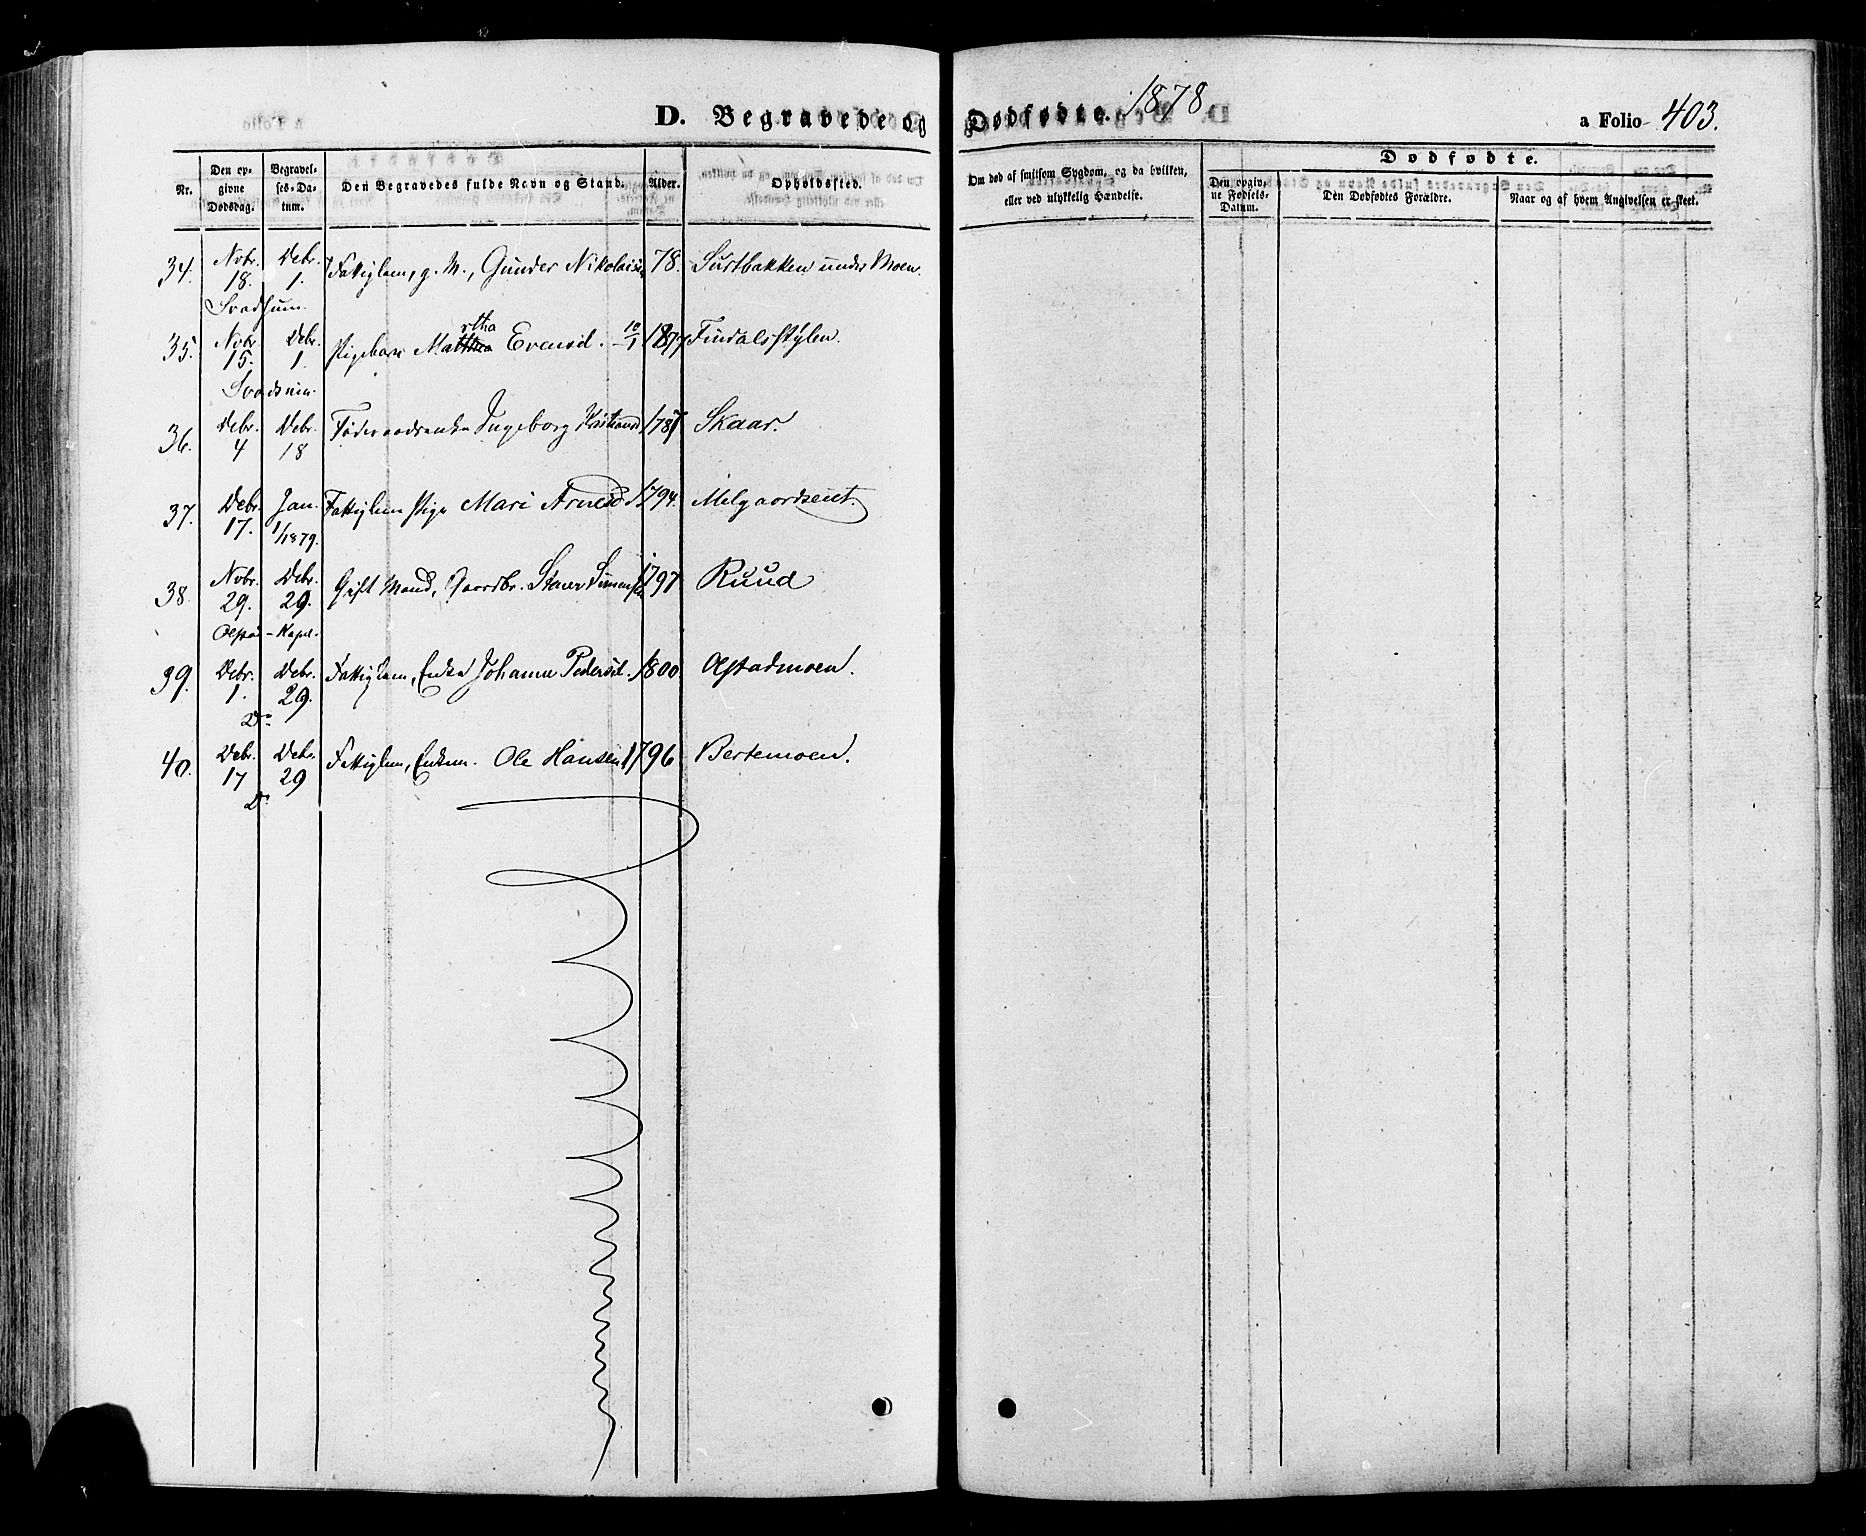 D. Begravede og Dødfødte. 1878
a Folio 403.
Nr. Den opgivne Dødsdag. Begravelses-Datum. Den Begravedes fulde Navn og Stand. Alder. Opholdssted. Om død af smitsom Sygdom, og da hvilken, eller ved ulykkelig Hændelse. Dødfødte. Den opgivne Fødsels-Datum. Den Dødfødtes Forældre. Naar og af hvem Angivelsen er skeet.
34. Nvbr. 18. Debr. 1. Fattiglem, g. M., Gunder Nikolaisen 78. under Moen.
Svadsum.
35. Nvbr. 15. Debr. 1. Pigebarn Martha Evensd. 10/1 1877 Findalsstylen.
Svadsum.
36. Debr. 4 Debr. 18 Føderaadsenke Ingeborg 1787 Skaar.
37. Debr. 17. Jan. 1/1879. Fattiglem Pige Mari Arnesd. 1794. Melgaardseiet.
38 Nvbr. 29. Debr. 29. Gift Mand, Gaardbr. Simensen 1797 Ruud
Kapel.
39. Debr. 1. Debr. 29. Fattiglem, Enke Johanne Pedersd. 1800 Opstadmoen.
Do
40. Debr. 17 Debr. 29 Fattiglem, Enkem. Ole Hansen 1796 Bertemoen.
Do